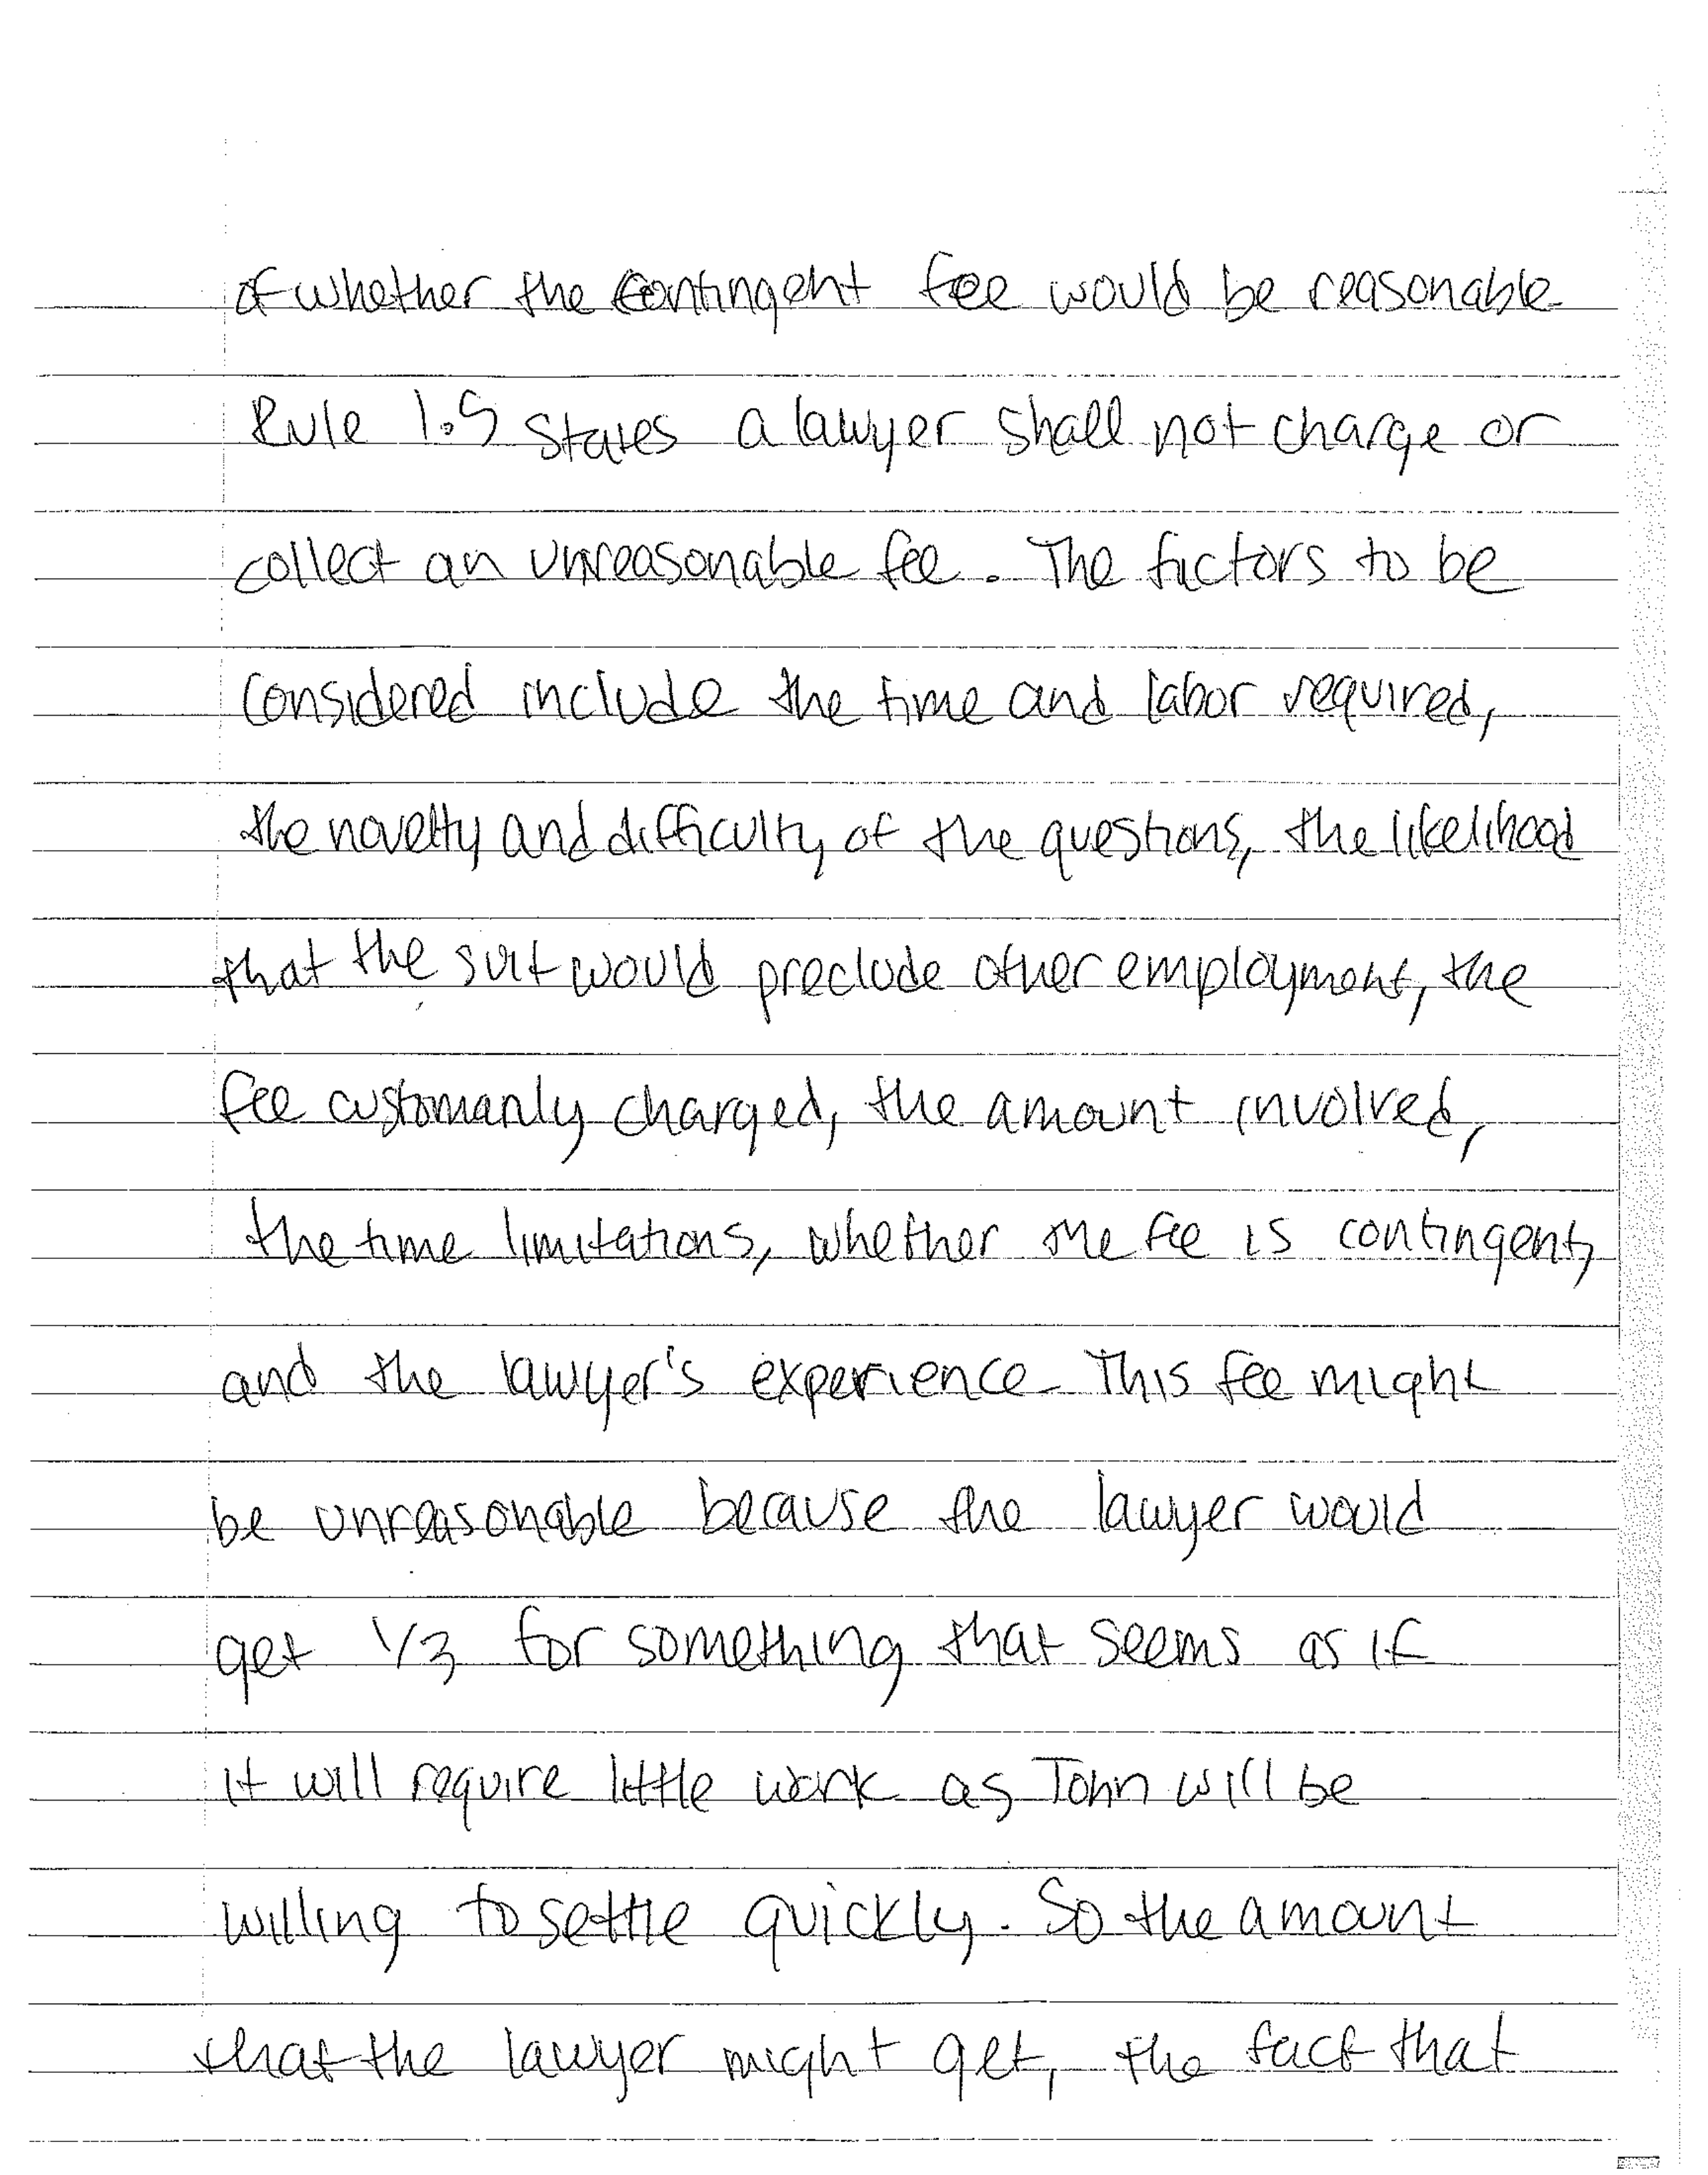 of whether the contingent fee would be reasonable
Rule 1.5 states a lawyer shall not charge or
collect an unreasonable fee. The factors to be
considered include the time and labor required,
the novelty and difficulty of the questions, the likelihood
that the suit would preclude other employment, the
fee customarily charged, the amount involved,
the time limitations, whether the fee is contingent,
and the lawyer's experience. This fee might
be unreasonable because the lawyer would
get 1/3 for something that seems as if
it will require little work as John will be
willing to settle quickly. So the amount
that the lawyer might get, the fact that